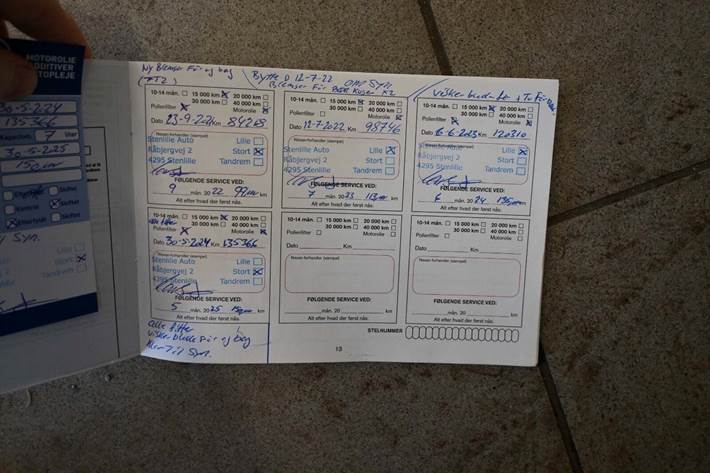 MOTOROLIE
ADDITIVER
30-5-224
135366
7 liter
30-5-2025
Skiftet
Skiftet
Efterfyldt
Syn.
Ny Blemser for og bag
Bytte D 12-7-22
OM Syn
10-14 mån. 15 000 km 20 000 km
30 000 km 40 000 km
Pollenfilter Motorolie
Dato 23-9-21 Km 84263
Nissan-forhandler (stempel)
Stenlille Auto Lille
Råbjergvej 2 Stort
4295 Stenlille Tandrem
FØLGENDE SERVICE VED:
9 mån. 20 22 km
Alt efter hvad der først nås.
10-14 mån. 15 000 km 20 000 km
30 000 km 40 000 km
Pollenfilter Motorolie
Dato 12-7-2022 Km 98746
Nissan-forhandler (stempel)
Stenlille Auto Lille
Råbjergvej 2 Stort
4295 Stenlille Tandrem
FØLGENDE SERVICE VED:
7 mån. 20 23 km
Alt efter hvad der først nås.
10-14 mån. 15 000 km 20 000 km
30 000 km 40 000 km
Pollenfilter Motorolie
Dato 6-6-2023 Km 120310
Nissan-forhandler (stempel)
Stenlille Auto Lille
Råbjergvej 2 Stort
4295 Stenlille Tandrem
FØLGENDE SERVICE VED:
6 mån. 20 24 km
Alt efter hvad der først nås.
10-14 mån. 15 000 km 20 000 km
30 000 km 40 000 km
Pollenfilter Motorolie
Dato 30-5-224 Km 135366
Nissan-forhandler (stempel)
Stenlille Auto Lille
Råbjergvej 2 Stort
4295 Stenlille Tandrem
FØLGENDE SERVICE VED:
5 mån. 20 25 km
Alt efter hvad der først nås.
10-14 mån. 15 000 km 20 000 km
30 000 km 40 000 km
Pollenfilter Motorolie
Dato Km
Nissan-forhandler (stempel)
FØLGENDE SERVICE VED:
mån. 20 km
Alt efter hvad der først nås.
10-14 mån. 15 000 km 20 000 km
30 000 km 40 000 km
Pollenfilter Motorolie
Dato Km
Nissan-forhandler (stempel)
FØLGENDE SERVICE VED:
mån. 20 km
Alt efter hvad der først nås.
alle filtre
viskerblade for og bag
Klar Til Syn.
STELNUMMER
13